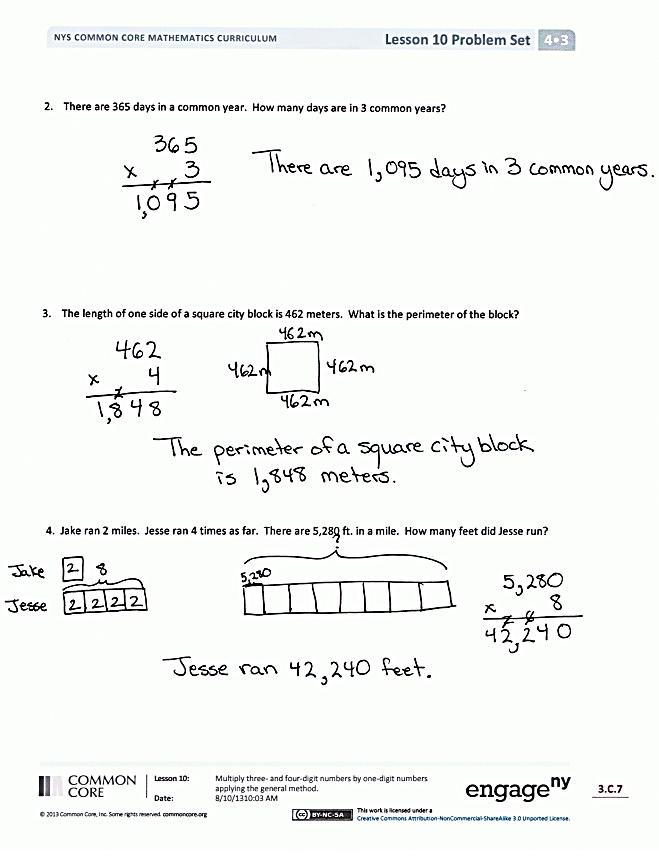 NYS COMMON CORE MATHEMATICS CURRICULUM Lesson 10 Problem Set 4•3
2. There are 365 days in a common year. How many days are in 3 common years?
365
x 3
1,095
There are 1,095 days in 3 common years.
3. The length of one side of a square city block is 462 meters. What is the perimeter of the block?
462
x 4
1,848
462m
462m 462m
462m
The perimeter of a square city block
is 1,848 meters.
4. Jake ran 2 miles. Jesse ran 4 times as far. There are 5,280 ft. in a mile. How many feet did Jesse run?
Jake 2 8
Jesse 2 2 2 2
?
5,280
5,280
x 8
42,240
Jesse ran 42,240 feet.
COMMON CORE
Lesson 10: Multiply three- and four-digit numbers by one-digit numbers
applying the general method.
Date: 8/10/1310:03 AM
engageny
3.C.7
© 2013 Common Core, Inc. Some rights reserved. commoncore.org
(cc) BY-NC-SA
This work is licensed under a
Creative Commons Attribution-NonCommercial-ShareAlike 3.0 Unported License.